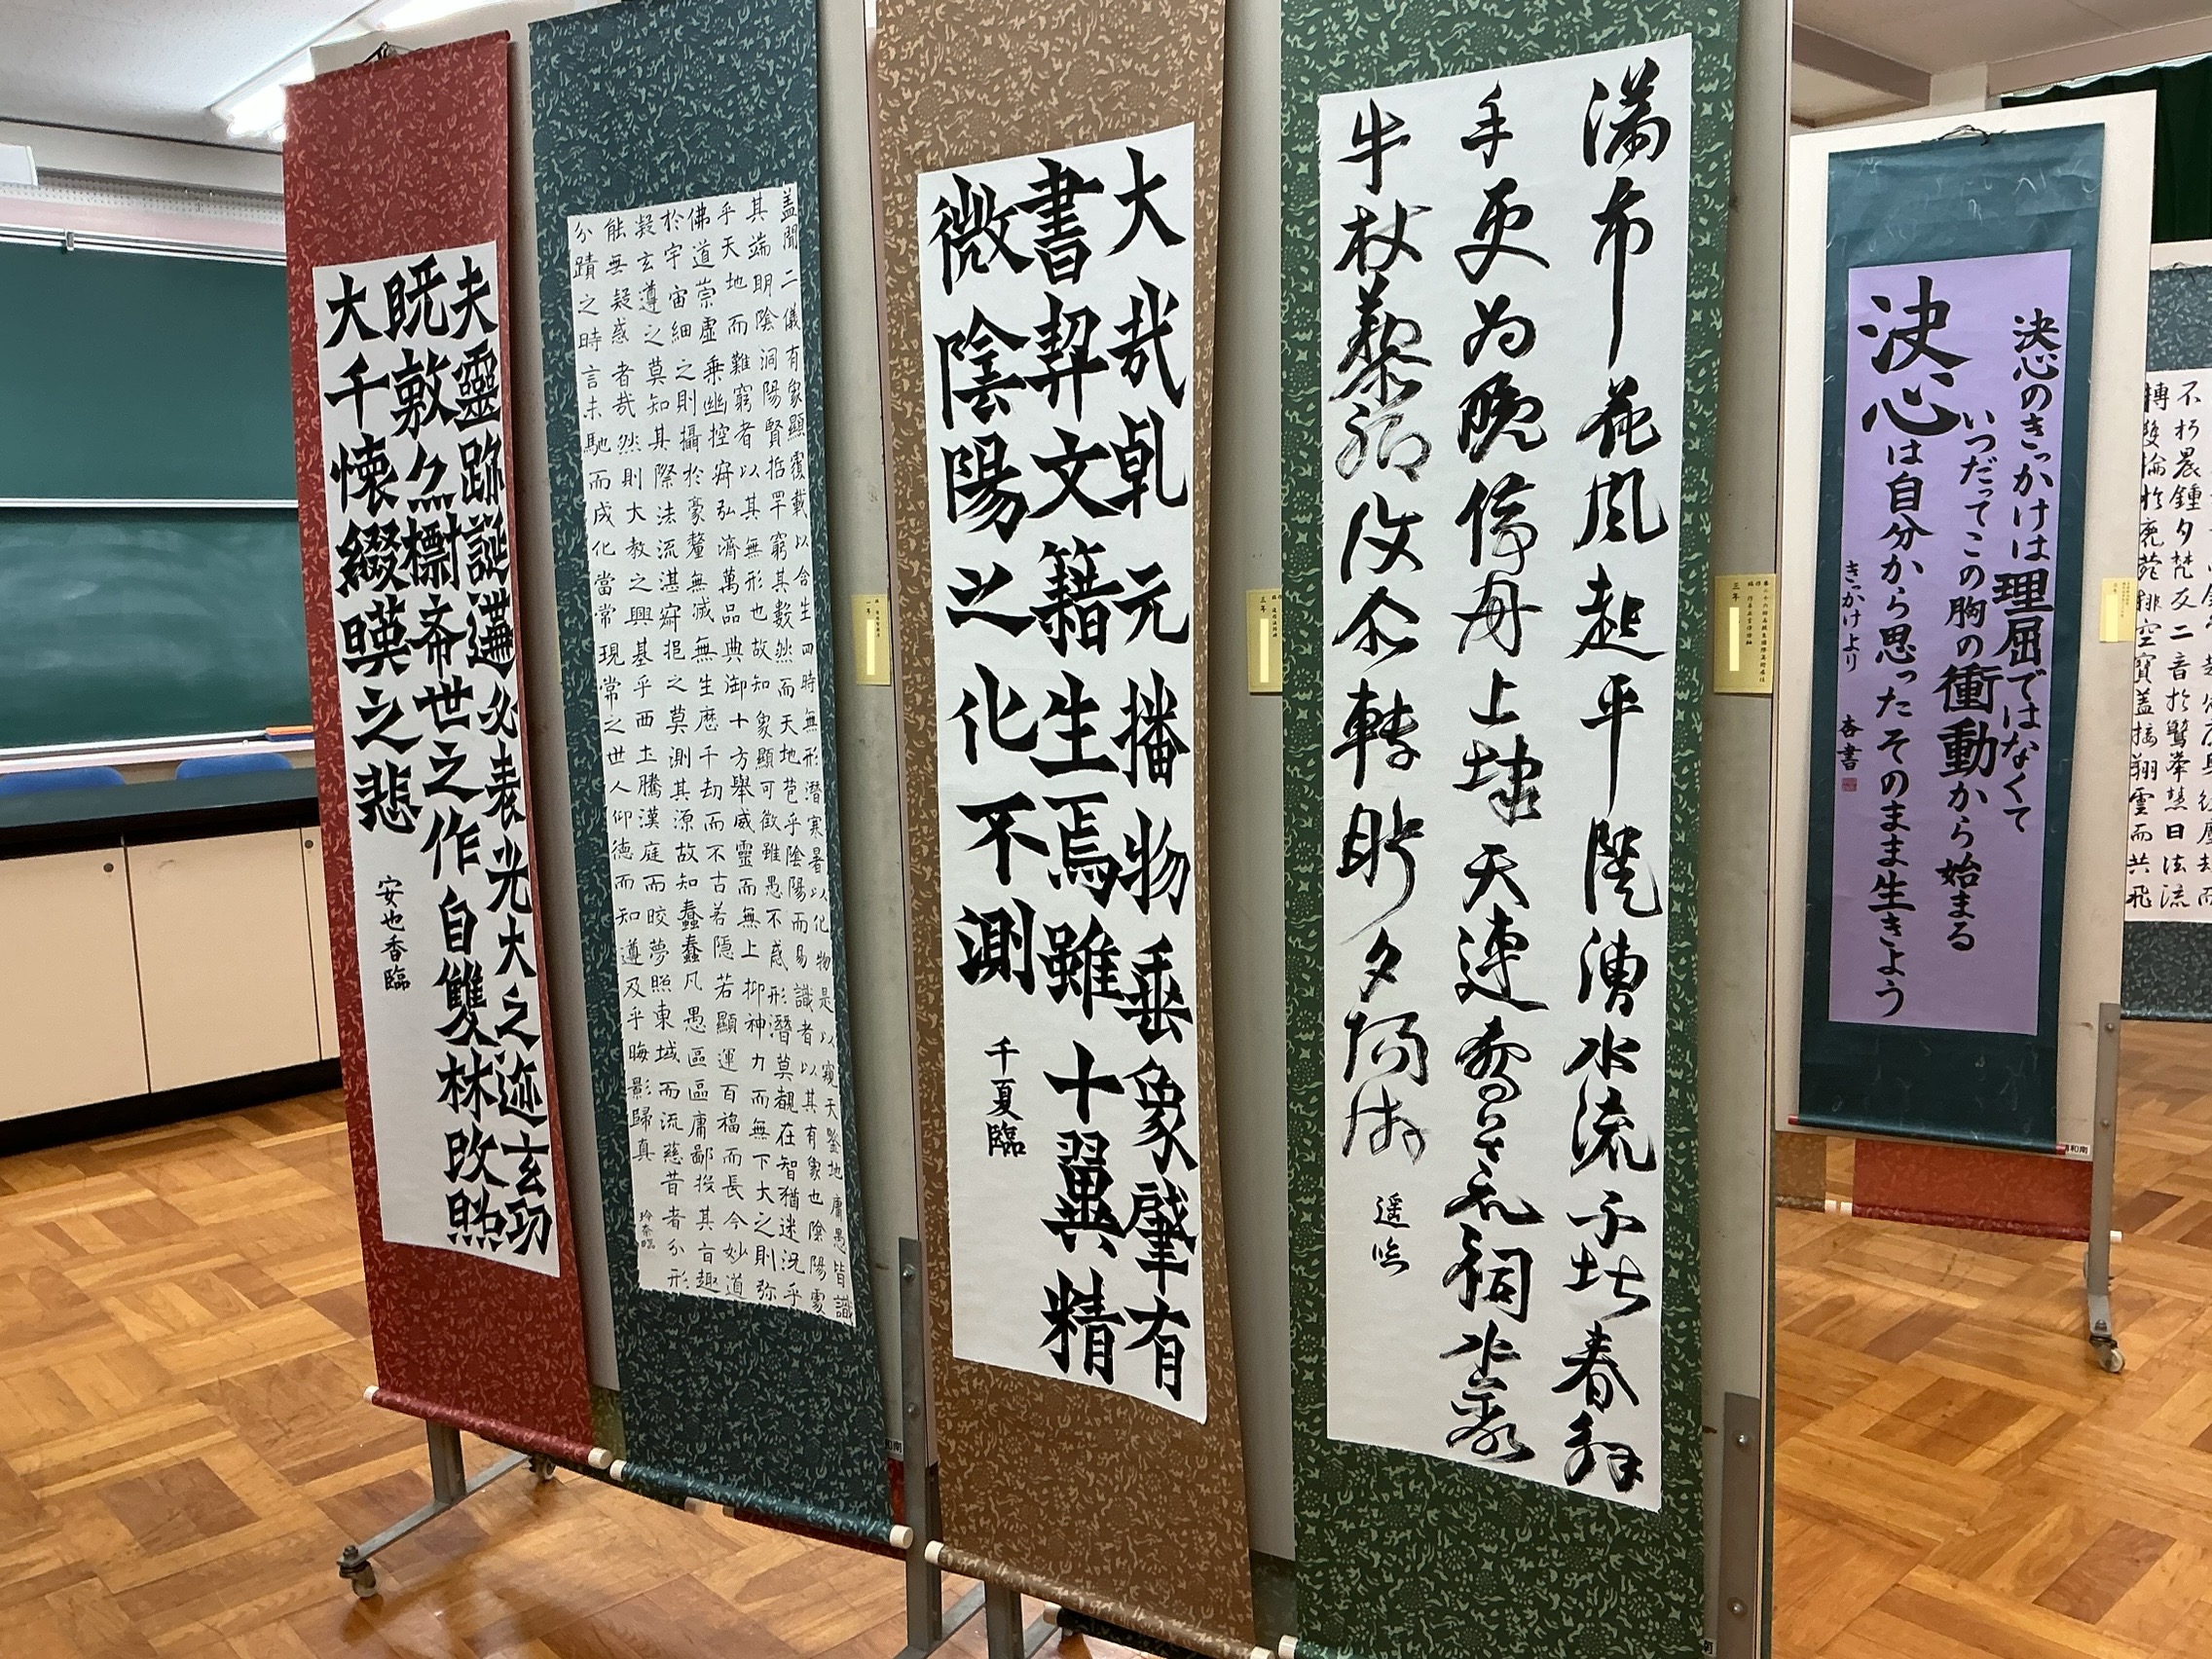 夫靈跡誕遘必表光大之迹玄功
既敷亦標斋世之作自雙林改照
大千懷綴暎之悲
安也香臨
盖聞二儀有象顯覆載以含生四時無形潛寒暑以化物是以窺天鑒地庸愚皆識
其端明陰洞陽賢哲罕窮其數然而天地苞乎陰陽而易識者以其有象也陰陽處
乎天地而難窮者以其無形也故知象顯可徵雖愚不惑形潛莫覩在智猶迷況乎
佛道崇虛乗幽控寂弘濟萬品典御十方舉威靈而無上抑神力而無下大之則弥
於宇宙細之則攝於豪釐無滅無生歷千劫而不古若隱若顯運百福而長今妙道
凝玄遵之莫知其際法流湛寂挹之莫測其源故知蠢蠢凡愚區區庸鄙投其旨趣
能無疑惑者哉然則大教之興基乎西土騰漢庭而皎夢照東域而流慈昔者分形
分蹟之時言未馳而成化當常現常之世人仰德而知遵及乎晦影歸真
玲奈臨
大哉乹元播物垂象肇有
書契文籍生焉雖十翼精
微陰陽之化不測
千夏臨
満市花風起平隄漕水流不堪春解
手更為晩停舟上埭天連荒祠木蔽
牛杖藜聊復尒轉眄夕陽
決心のきっかけは理屈ではなくて
いつだってこの胸の衝動から始まる
決心は自分から思ったそのまま生きよう
きっかけより 杏書
不朽晨鍾夕梵交二音於鷲峯慧日法流
轉雙輪於鹿菀排空寶盖接翔雲而共飛
三年
三年
一年